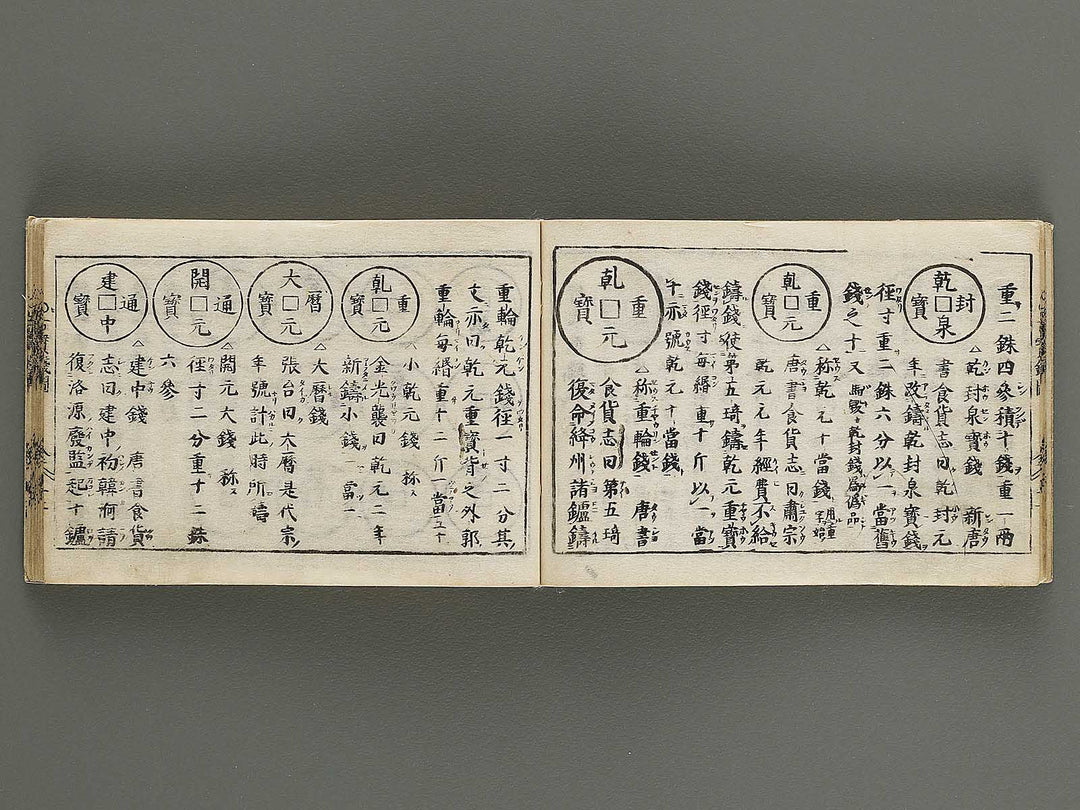 重二銖四參積十錢重一兩
乾封泉寶
△乾封泉寶錢 新唐
書食貨志曰乾封元
年改鑄乾封泉寶錢
徑寸重二銖六分以一當舊
錢之十又
乾元重寶
△称乾元十當錢
唐書食貨志曰肅宗
乾元元年經費不給
鑄錢使第五琦鑄乾元重寶
錢徑寸每緡重十斤以一當
十亦號乾元十當錢
乾元重寶
△称重輪錢 唐書
食貨志曰第五琦
復命絳州諸鑪鑄
重輪乾元錢徑一寸二分其
文亦曰乾元重寶背之外郭
重輪每緡重十二斤一當五十
乾元重寶
△小乾元錢 称ス
金光襲曰乾元二年
新鑄小錢一當一
大曆元寶
△大曆錢
張台曰大曆是代宗
年號計此時所鑄
開通元寶
△開元大錢 称ス
徑寸二分重十二銖
六參
建中通寶
△建中錢 唐書食貨
志曰建中初韓洄請
復洛源廢監起十鑪